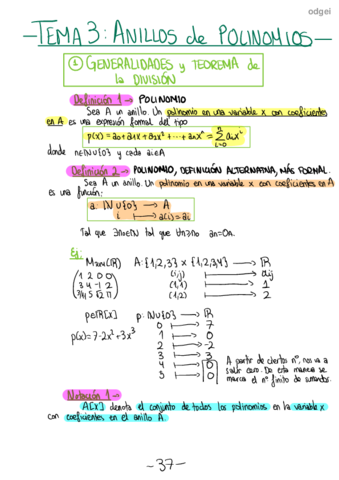 odgei
TEMA 3: ANILLOS de POLINOMIOS
① GENERALIDADES y TEOREMA de
la DIVISIÓN
Definición 1 → POLINOMIO
Sea A un anillo. Un polinomio en una variable x con coeficientes
en A es una expresión formal del tipo
p(x) = a0 + a1x + a2x² + ... + anxⁿ = Σ aixⁱ
n
i=0
donde n∈ℕ∪{0} y cada ai∈A
Definición 2 → POLINOMIO, DEFINICIÓN ALTERNATIVA, MÁS FORMAL.
Sea A un anillo. Un polinomio en una variable x con coeficientes en A
es una función:
a: ℕ∪{0} → A
i ↦ a(i) = ai
Tal que ∃n0∈ℕ tal que ∀n≥n0 an=0.
Ej:
M3x4(ℝ) A: {1,2,3} × {1,2,3,4} → ℝ
(i,j) ↦ aij
(1,1) ↦ 1
(1,2) ↦ 2
1 2 0 0
3 4 -1 2
p∈ℝ[x] p: ℕ∪{0} → ℝ
p(x) = 7-2x²+3x³
0 ↦ 7
1 ↦ 0
2 ↦ -2
3 ↦ 3
4 ↦ 0
5 ↦ 0
A partir de cierto nº, nos va a
salir cero. De esta manera se
marca el nº finito de sumandos.
Notación 1 →
A[x] denota el conjunto de todos los polinomios en la variable x
con coeficientes en el anillo A.
-37-